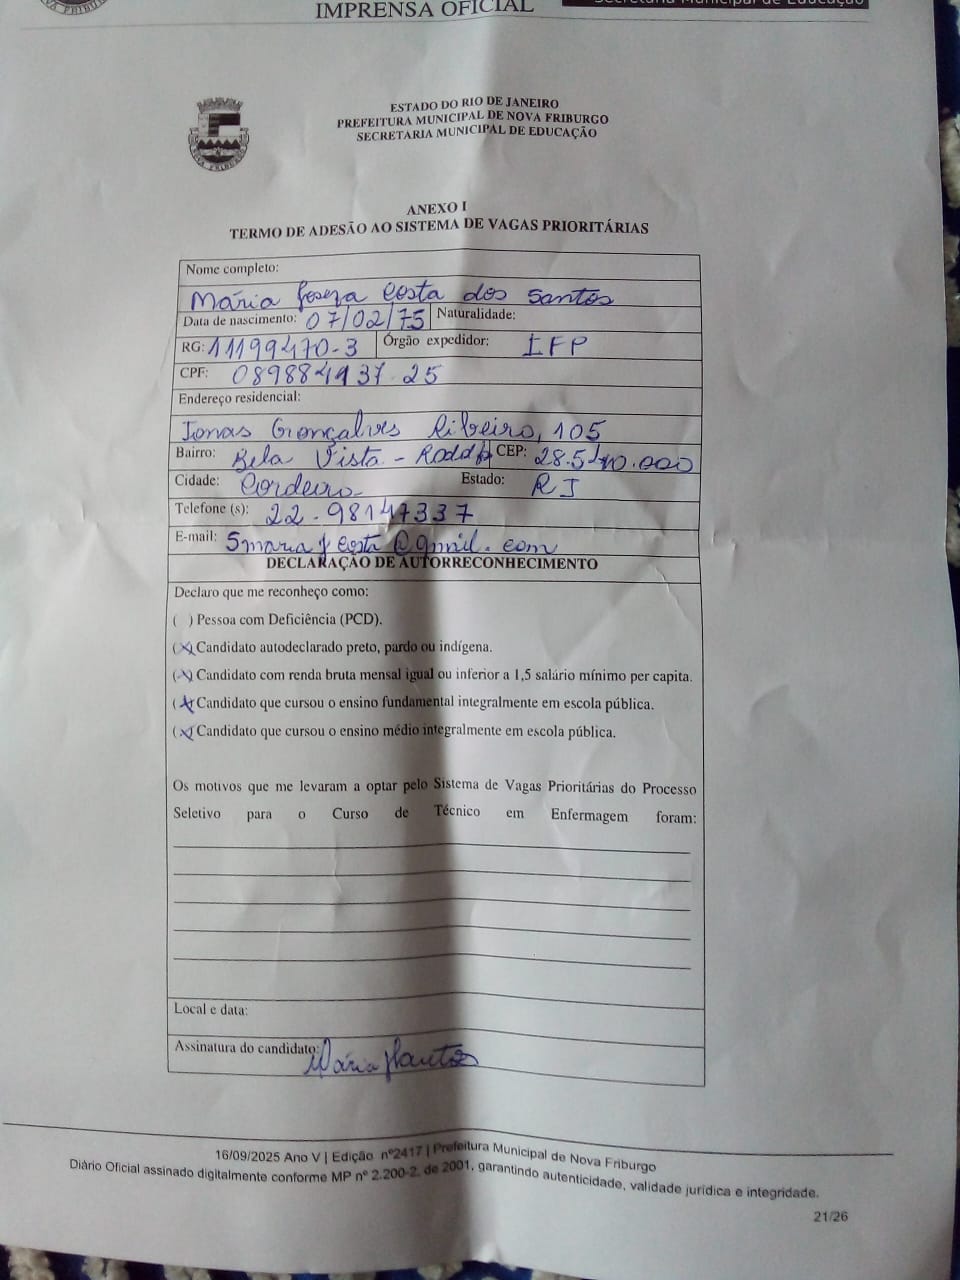 IMPRENSA OFICIAL
Secretaria Municipal de Educação
ESTADO DO RIO DE JANEIRO
PREFEITURA MUNICIPAL DE NOVA FRIBURGO
SECRETARIA MUNICIPAL DE EDUCAÇÃO
ANEXO I
TERMO DE ADESÃO AO SISTEMA DE VAGAS PRIORITÁRIAS
Nome completo:
Mária Costa dos Santos
Data de nascimento: 07/02/75 Naturalidade:
RG: 11199470-3 Órgão expedidor: IFP
CPF: 25
Endereço residencial:
Jonas Gonçalves Ribeiro, 105
Bairro: Bela Vista - CEP: 28.540.000
Cidade: Cordeiro Estado: RJ
Telefone (s): 22-98147337
E-mail:
DECLARAÇÃO DE AUTORRECONHECIMENTO
Declaro que me reconheço como:
( ) Pessoa com Deficiência (PCD).
(X) Candidato autodeclarado preto, pardo ou indígena.
(X) Candidato com renda bruta mensal igual ou inferior a 1,5 salário mínimo per capita.
(X) Candidato que cursou o ensino fundamental integralmente em escola pública.
(X) Candidato que cursou o ensino médio integralmente em escola pública.
Os motivos que me levaram a optar pelo Sistema de Vagas Prioritárias do Processo
Seletivo para o Curso de Técnico em Enfermagem foram:
Local e data:
Assinatura do candidato: Mária
16/09/2025 Ano V | Edição nº2417 | Prefeitura Municipal de Nova Friburgo
Diário Oficial assinado digitalmente conforme MP nº 2.200-2, de 2001, garantindo autenticidade, validade jurídica e integridade.
21/26